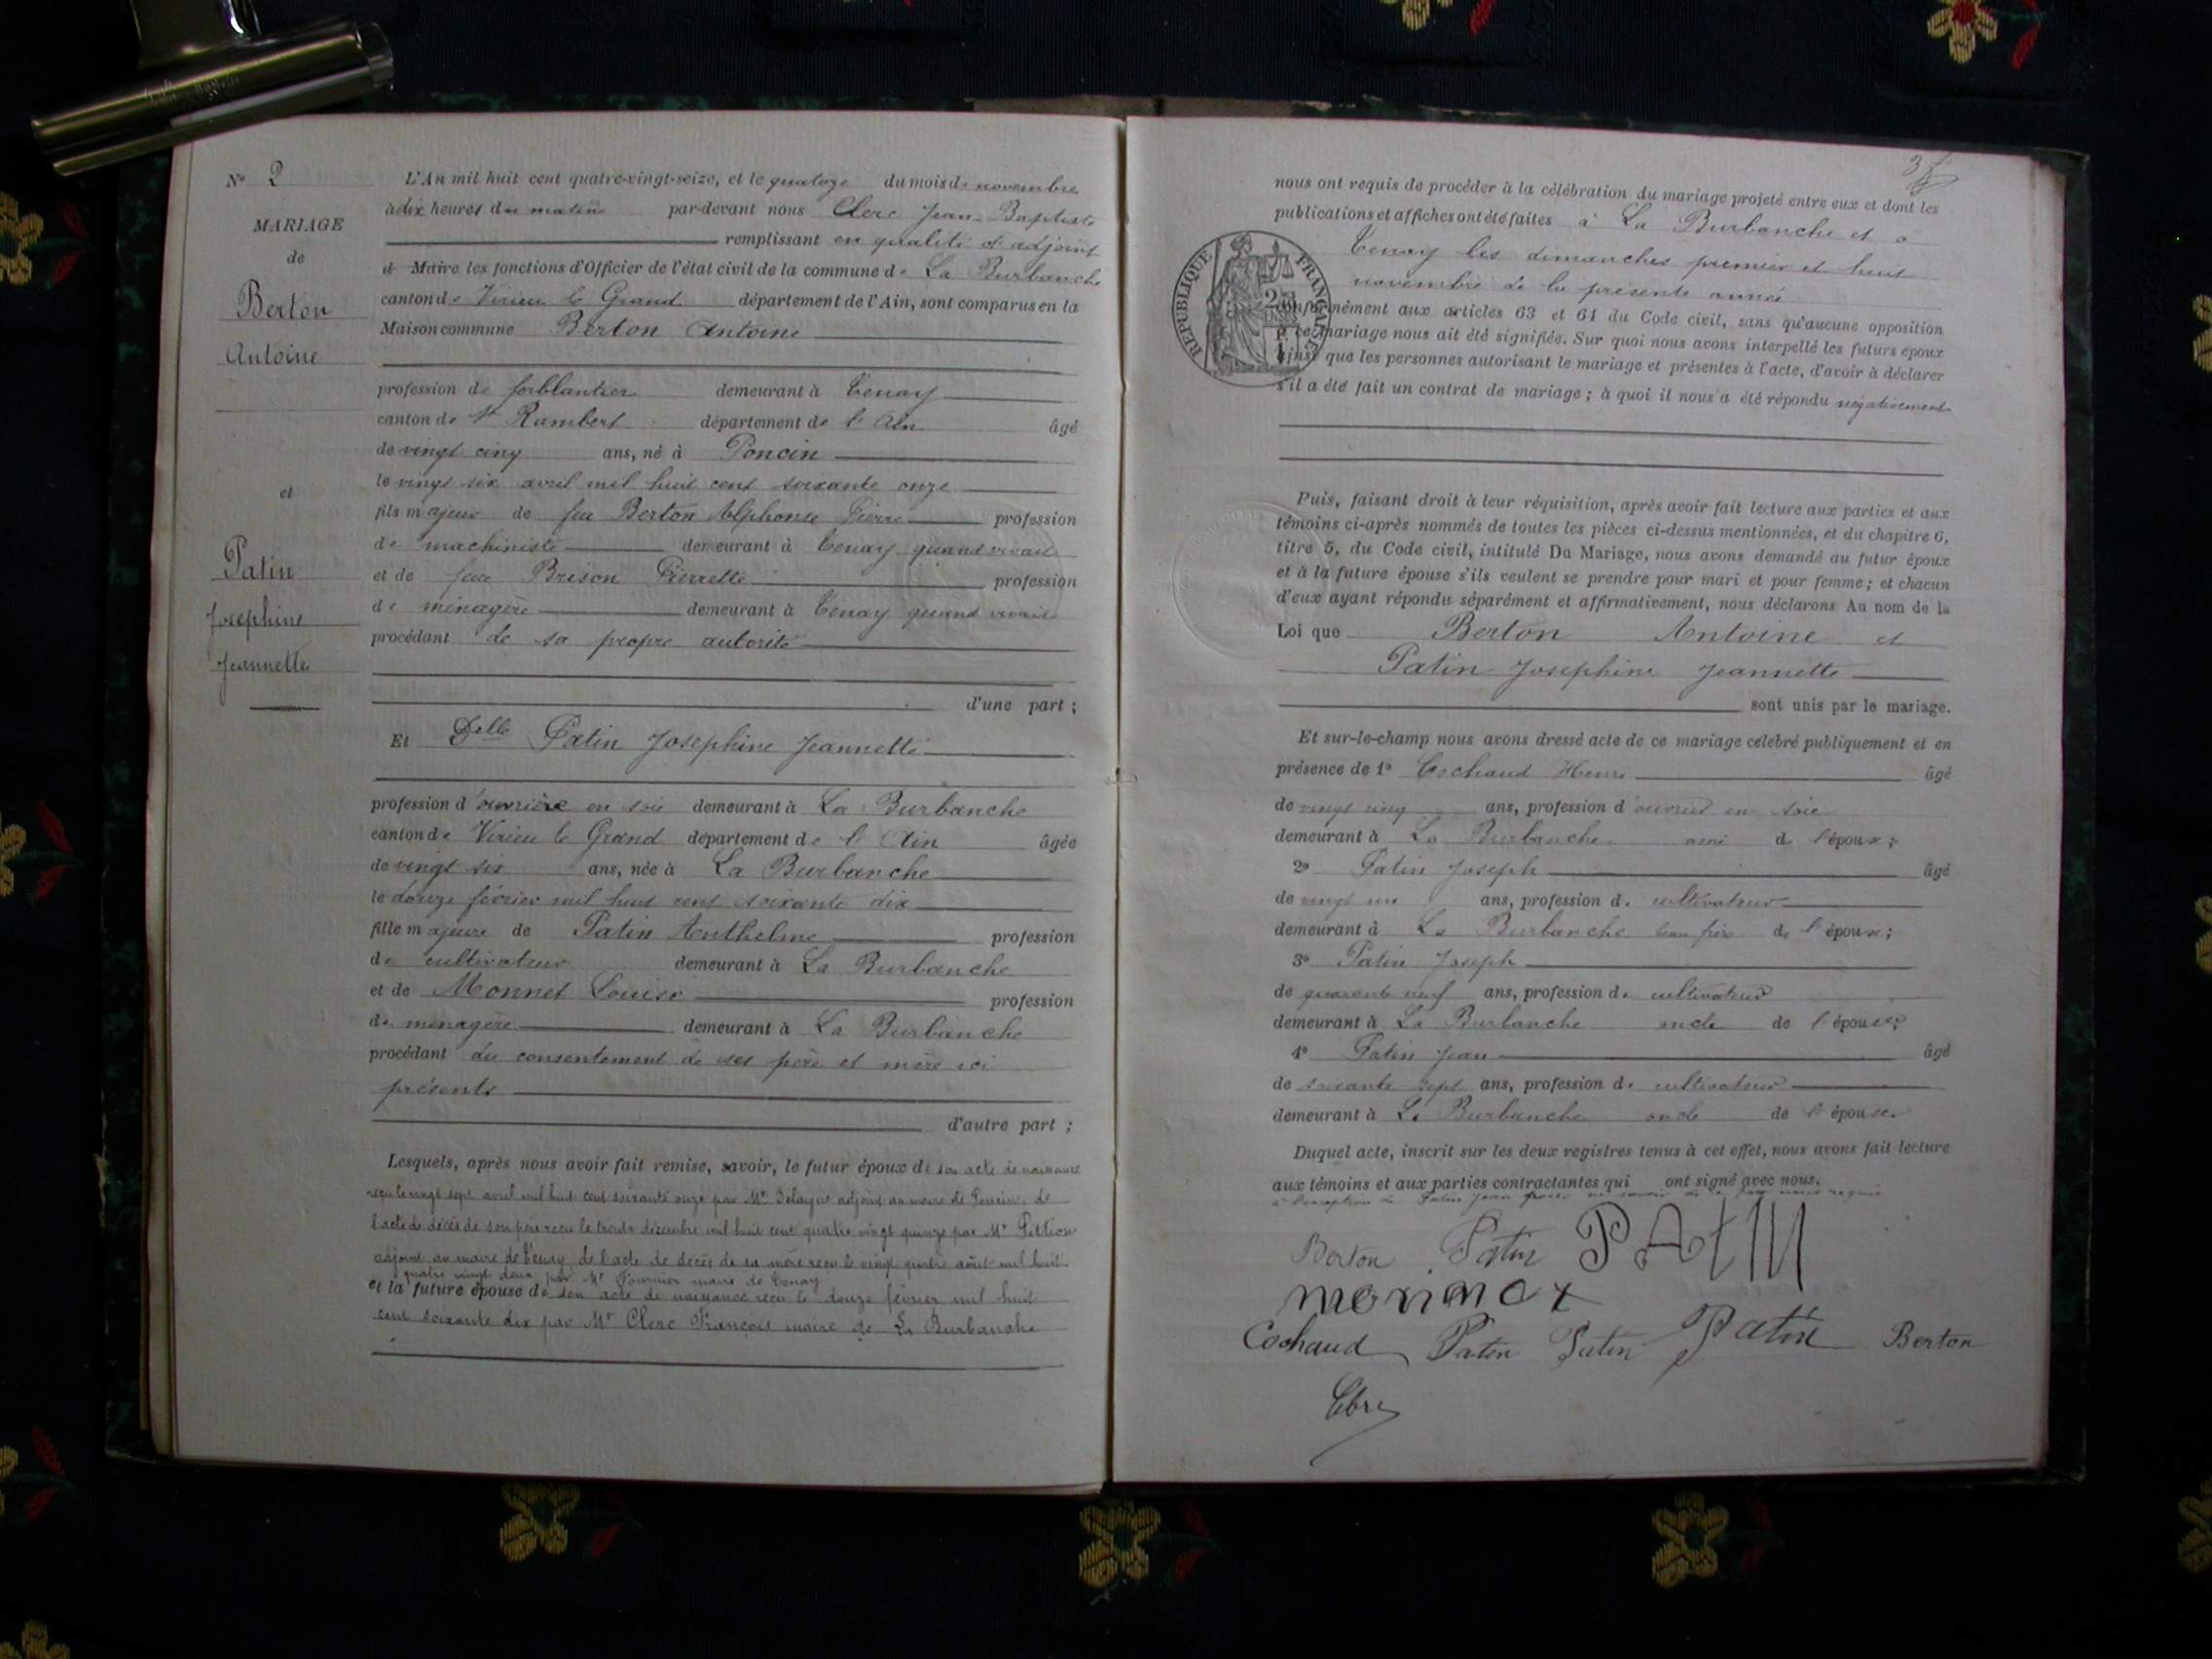 Nº 2
MARIAGE
de
Berton
Antoine
et
Patin
Josephine
Jeannette
L'An mil huit cent quatre-vingt-seize, et le quatoze du mois de novembre
à dix heures du matin par-devant nous Clerc Jean-Baptiste
remplissant en qualité d'adjoint
et Maire les fonctions d'Officier de l'état civil de la commune de La Burbanche
canton de Virieu le Grand département de l'Ain, sont comparus en la
Maison commune Berton Antoine
profession de ferblantier demeurant à Tenay
canton de St Rambert département de l'Ain âgé
de vingt cinq ans, né à Poncin
le vingt six avril mil huit cent soixante onze
fils majeur de feu Berton Alphonse Pierre profession
de machiniste demeurant à Tenay quand vivait
et de feue Brison Pierrette profession
de ménagère demeurant à Tenay quand vivait
procédant de sa propre autorité
d'une part ;
Et Delle Patin Josephine Jeannette
profession d'ouvrière en soie demeurant à La Burbanche
canton de Virieu le Grand département de l'Ain âgée
de vingt six ans, née à La Burbanche
le douze février mil huit cent soixante dix
fille majeure de Patin Anthelme profession
de cultivateur demeurant à La Burbanche
et de Monnet Louise profession
de ménagère demeurant à La Burbanche
procédant du consentement de ses père et mère ici
présents
d'autre part ;
Lesquels, après nous avoir fait remise, savoir, le futur époux de son acte de naissance
reçu le vingt sept avril mil huit cent soixante onze par Mr adjoint au maire de Poncin, de
l'acte de décès de son père reçu le trente décembre mil huit cent quatre vingt quinze par Mr Pittion
adjoint au maire de Tenay de l'acte de décès de sa mère reçu le vingt quatre août mil huit
quatre vingt deux par Mr Fournier maire de Tenay
et la future épouse de son acte de naissance reçu le douze février mil huit
cent soixante dix par Mr Clerc François maire de La Burbanche
nous ont requis de procéder à la célébration du mariage projeté entre eux et dont les
publications et affiches ont été faites à La Burbanche et à
Tenay les dimanches premier et huit
novembre de la présente année
RÉPUBLIQUE FRANÇAISE
conformément aux articles 63 et 64 du Code civil, sans qu'aucune opposition
à ce mariage nous ait été signifiée. Sur quoi nous avons interpellé les futurs époux
ainsi que les personnes autorisant le mariage et présentes à l'acte, d'avoir à déclarer
s'il a été fait un contrat de mariage ; à quoi il nous a été répondu négativement
Puis, faisant droit à leur réquisition, après avoir fait lecture aux parties et aux
témoins ci-après nommés de toutes les pièces ci-dessus mentionnées, et du chapitre 6,
titre 5, du Code civil, intitulé Du Mariage, nous avons demandé au futur époux
et à la future épouse s'ils veulent se prendre pour mari et pour femme ; et chacun
d'eux ayant répondu séparément et affirmativement, nous déclarons Au nom de la
Loi que Berton Antoine et
Patin Josephine Jeannette
sont unis par le mariage.
Et sur-le-champ nous avons dressé acte de ce mariage célébré publiquement et en
présence de 1º Cochaud Henri âgé
de vingt cinq ans, profession d'ouvrier en soie
demeurant à La Burbanche ami de l'époux ;
2º Patin Joseph âgé
de vingt un ans, profession de cultivateur
demeurant à La Burbanche beau frère de l'époux ;
3º Patin Joseph
de quarante neuf ans, profession de cultivateur
demeurant à La Burbanche oncle de l'épouse ;
4º Patin Jean âgé
de soixante sept ans, profession de cultivateur
demeurant à La Burbanche oncle de l'épouse
Duquel acte, inscrit sur les deux registres tenus à cet effet, nous avons fait lecture
aux témoins et aux parties contractantes qui ont signé avec nous.
à l'exception de Patin Jean pour ne savoir de ce requis
Berton Patin PAtIN
monnet
Cochaud Patin Patin Patin Berton